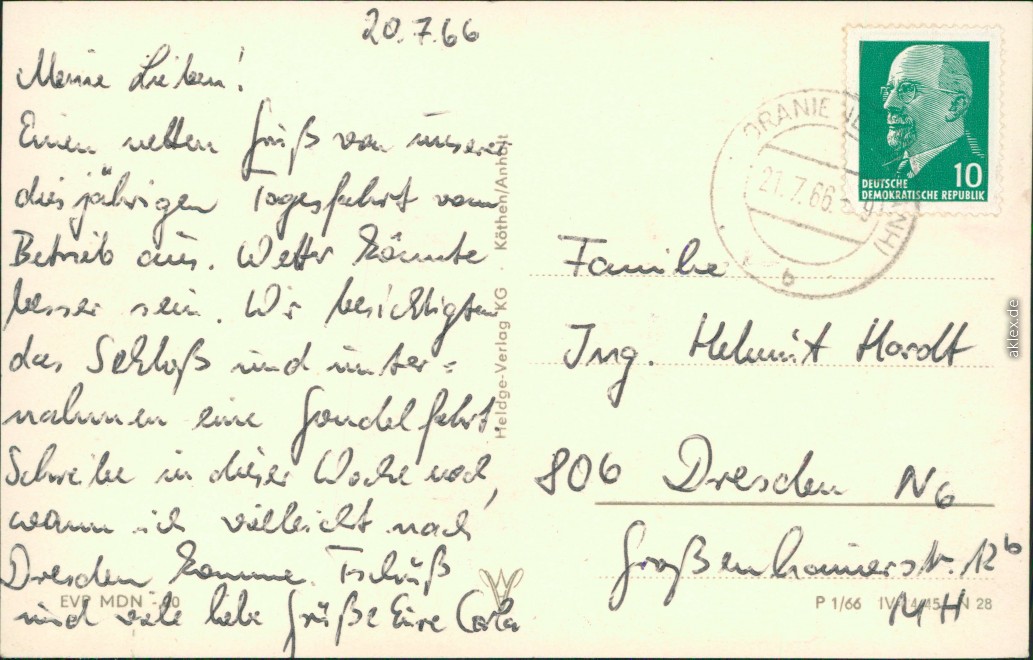 20.7.66
Meine Lieben!
Einen netten Gruß von unserer
diesjährigen Tagesfahrt vom
Betrieb aus. Wetter könnte
besser sein. Wir besichtigten
das Schloß und unter=
nahmen eine Gondelfahrt.
Schreibe in dieser Woche noch,
wann ich vielleicht nach
Dresden komme. Tschüß
und viele liebe Grüße Eure Carla
EVP MDN
Heldge-Verlag KG Köthen/Anhalt
ORANIE
21.7.66
b
10
DEUTSCHE
DEMOKRATISCHE REPUBLIK
Familie
Ing. Helmut Hardt
806 Dresden N6
Großenhainerstr. 12b
MH
P 1/66 N 28
akiex.de